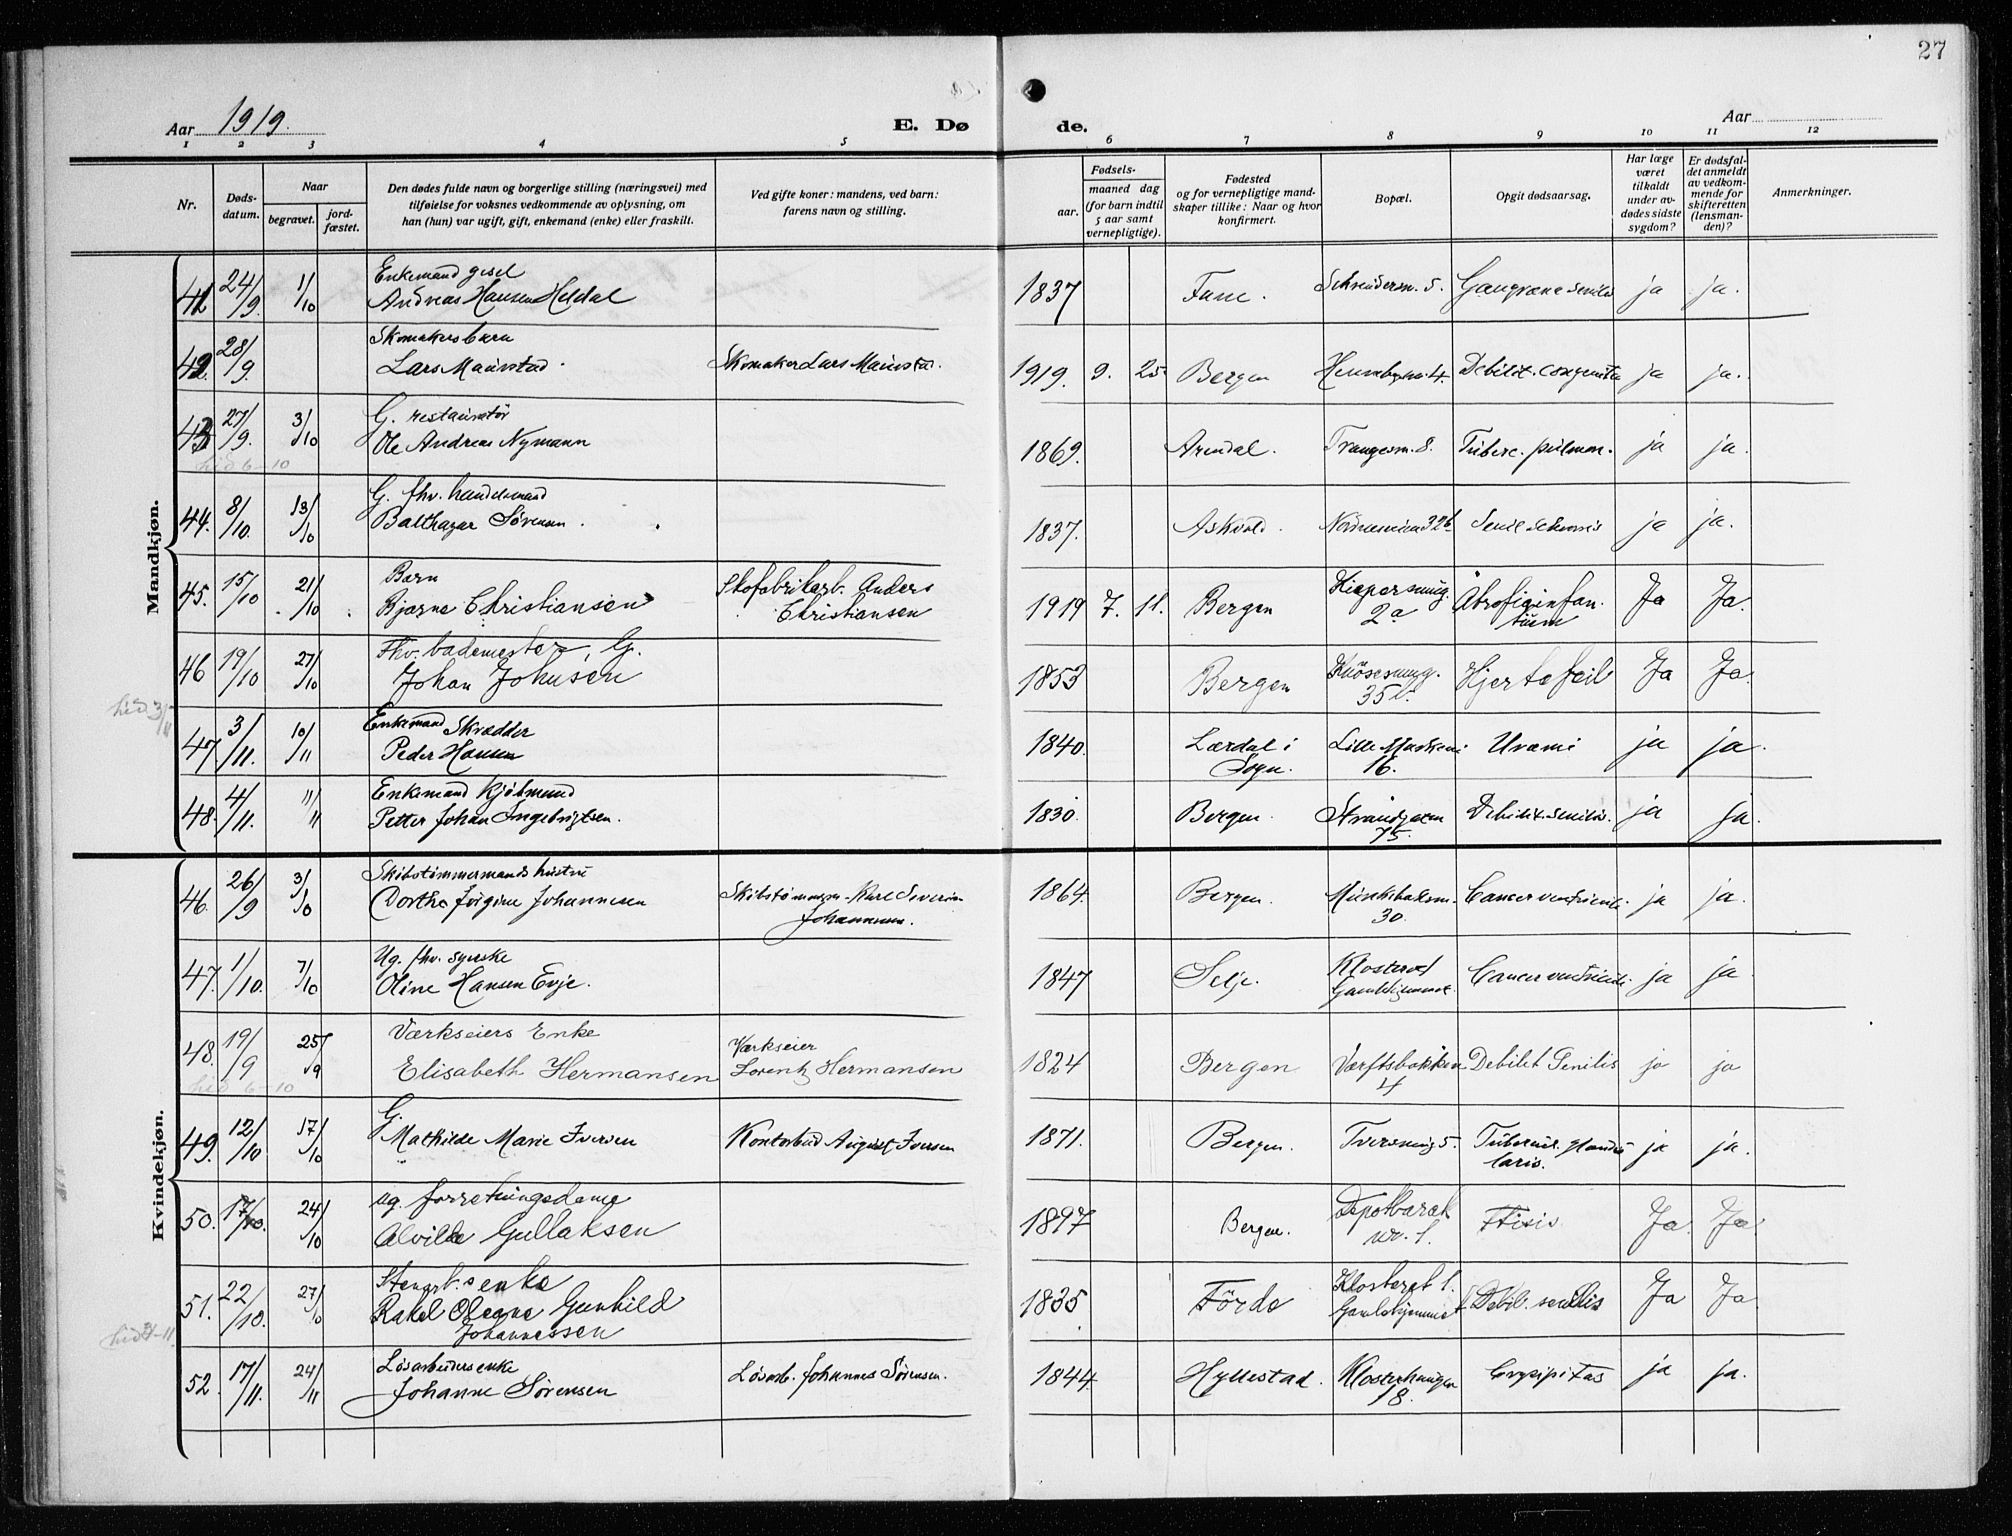 27
Aar 1919.
E. Dø
de.
Aar
1 2 3 4 5 6 7 8 9 10 11 12
Nr.
Døds-
datum.
Naar
begravet.
jord-
fæstet.
Den dødes fulde navn og borgerlige stilling (næringsvei) med
tilføielse for voksnes vedkommende av oplysning, om
han (hun) var ugift, gift, enkemand (enke) eller fraskilt.
Ved gifte koner: mandens, ved barn:
farens navn og stilling.
Fødsels-
aar.
maaned dag
(for barn indtil
5 aar samt
vernepligtige).
Fødested
og for vernepligtige mand-
skaper tillike: Naar og hvor
konfirmert.
Bopæl.
Opgit dødsaarsag.
Har læge
været
tilkaldt
under av-
dødes sidste
sygdom?
Er dødsfal-
det anmeldt
av vedkom-
mende for
skifteretten
(lensman-
den)?
Anmerkninger.
Mandkjøn.
Enkemand
41 24/9 1/10 Andreas Hansen Heldal 1837 Fane. 5. Gangræne senilis ja ja.
Skomakersbarn
42. 28/9. Lars Skomaker Lars 1919. 9. 25 Bergen 4. Debilit. congenita ja ja.
G. restauratør
43 27/9. 3/10 Ole Andreas Nymann 1869. Arendal. Trangesm. 8. Tuberc. pulmon. ja ja.
hid 6-10
G. fhv. handelsmand
44. 8/10. 13/10 Balthazar Sørensen. 1837. Askvold. 32b Senil ja ja.
Barn
45. 15/10 21/10 Bjarne Christiansen Skofabrikarb. Anders
Christiansen
1919 7. 11. Bergen 2a Atrofi infan.
tum
Ja Ja.
Fhv. bademester, G.
46 19/10 27/10 Johan Johnsen 1853 Bergen Knösesmug.
35b.
Hjertefeil Ja Ja.
hid 3/11
Enkemand Skrædder
47 3/11. 10/11 Peder Hansen 1840. Lærdal i
Sogn.
Lille
16.
Uræmi ja ja.
Enkemand Kjøbmand
48. 4/11. 11/11 Petter Johan Ingebrigtsen. 1830. Bergen. Strandgaten
75.
Debilit. senilis. ja ja.
Kvindekjøn.
Skibstømmermands hustru
46. 26/9 3/10 Dorthe Jørgine Johannesen Karl Severin
Johannesen.
1864. Bergen. Munkebakkm.
30.
Cancer ventriculi. ja ja.
Ug. fhv. syerske
47. 1/10. 7/10 Oline Hansen Evje. 1847 Selje. Klosteret
Gamlehjemmet.
Cancer ventriculi ja ja
Værkseiers Enke
48. 19/9 25/9 Elisabeth Hermansen Værkseier
Lorentz Hermansen
1824 Bergen Værftsbakken
4
Debilet Senilis ja ja
hid 6-10
G.
49. 12/10 17/10 Mathilde Marie Iversen Kontorbud August Iversen 1871. Bergen. Tversmug 5. Tubercul. glandu
laris.
ja ja.
ug. forretningsdame
50. 17/10. 24/10 Alvilde Gullaksen 1897 Bergen. Depotbarak
nr. 1.
Ftisis Ja. Ja.
Stenarb.s enke
51. 22/10. 27/10 Rakel Oleane Gunhild
Johannessen
1835 Förde Klosteret 1.
Gamlehjemmet
Debil. senilis Ja Ja.
hid 21-11
Løsarbeiders enke
52 17/11. 24/11 Johanne Sørensen Løsarb. Johannes Sørensen. 1844. Hyllestad. Klosterhaugen
18.
ja ja.